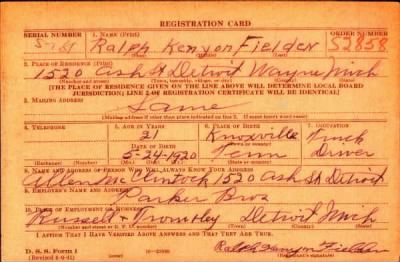 REGISTRATION CARD
SERIAL NUMBER 1. NAME (Print) ORDER NUMBER
Ralph Kenyon Fielder S2858
2. PLACE OF RESIDENCE (Print)
1520 Ash St Detroit Wayne Mich
(Number and street) (Town, township, village, or city) (County) (State)
[THE PLACE OF RESIDENCE GIVEN ON THE LINE ABOVE WILL DETERMINE LOCAL BOARD
JURISDICTION; LINE 2 OF REGISTRATION CERTIFICATE WILL BE IDENTICAL]
3. MAILING ADDRESS
Same
[Mailing address if other than place indicated on line 2. If same insert word same]
4. TELEPHONE 5. AGE IN YEARS 6. PLACE OF BIRTH 7. OCCUPATION
21 Knoxville Truck
DATE OF BIRTH (Town or county) Driver
5-24-1920 Tenn
(Exchange) (Number) (Mo.) (Day) (Yr.) (State or country)
8. NAME AND ADDRESS OF PERSON WHO WILL ALWAYS KNOW YOUR ADDRESS
Allen McClintock 1520 Ash St Detroit
9. EMPLOYER'S NAME AND ADDRESS
Parker Bros
10. PLACE OF EMPLOYMENT OR BUSINESS
Russell + Trombley Detroit Mich
(Number and street or R. F. D. number) (Town) (County) (State)
I AFFIRM THAT I HAVE VERIFIED ABOVE ANSWERS AND THAT THEY ARE TRUE.
D. S. S. Form 1
Ralph Kenyon Fielder
(Registrant's signature)